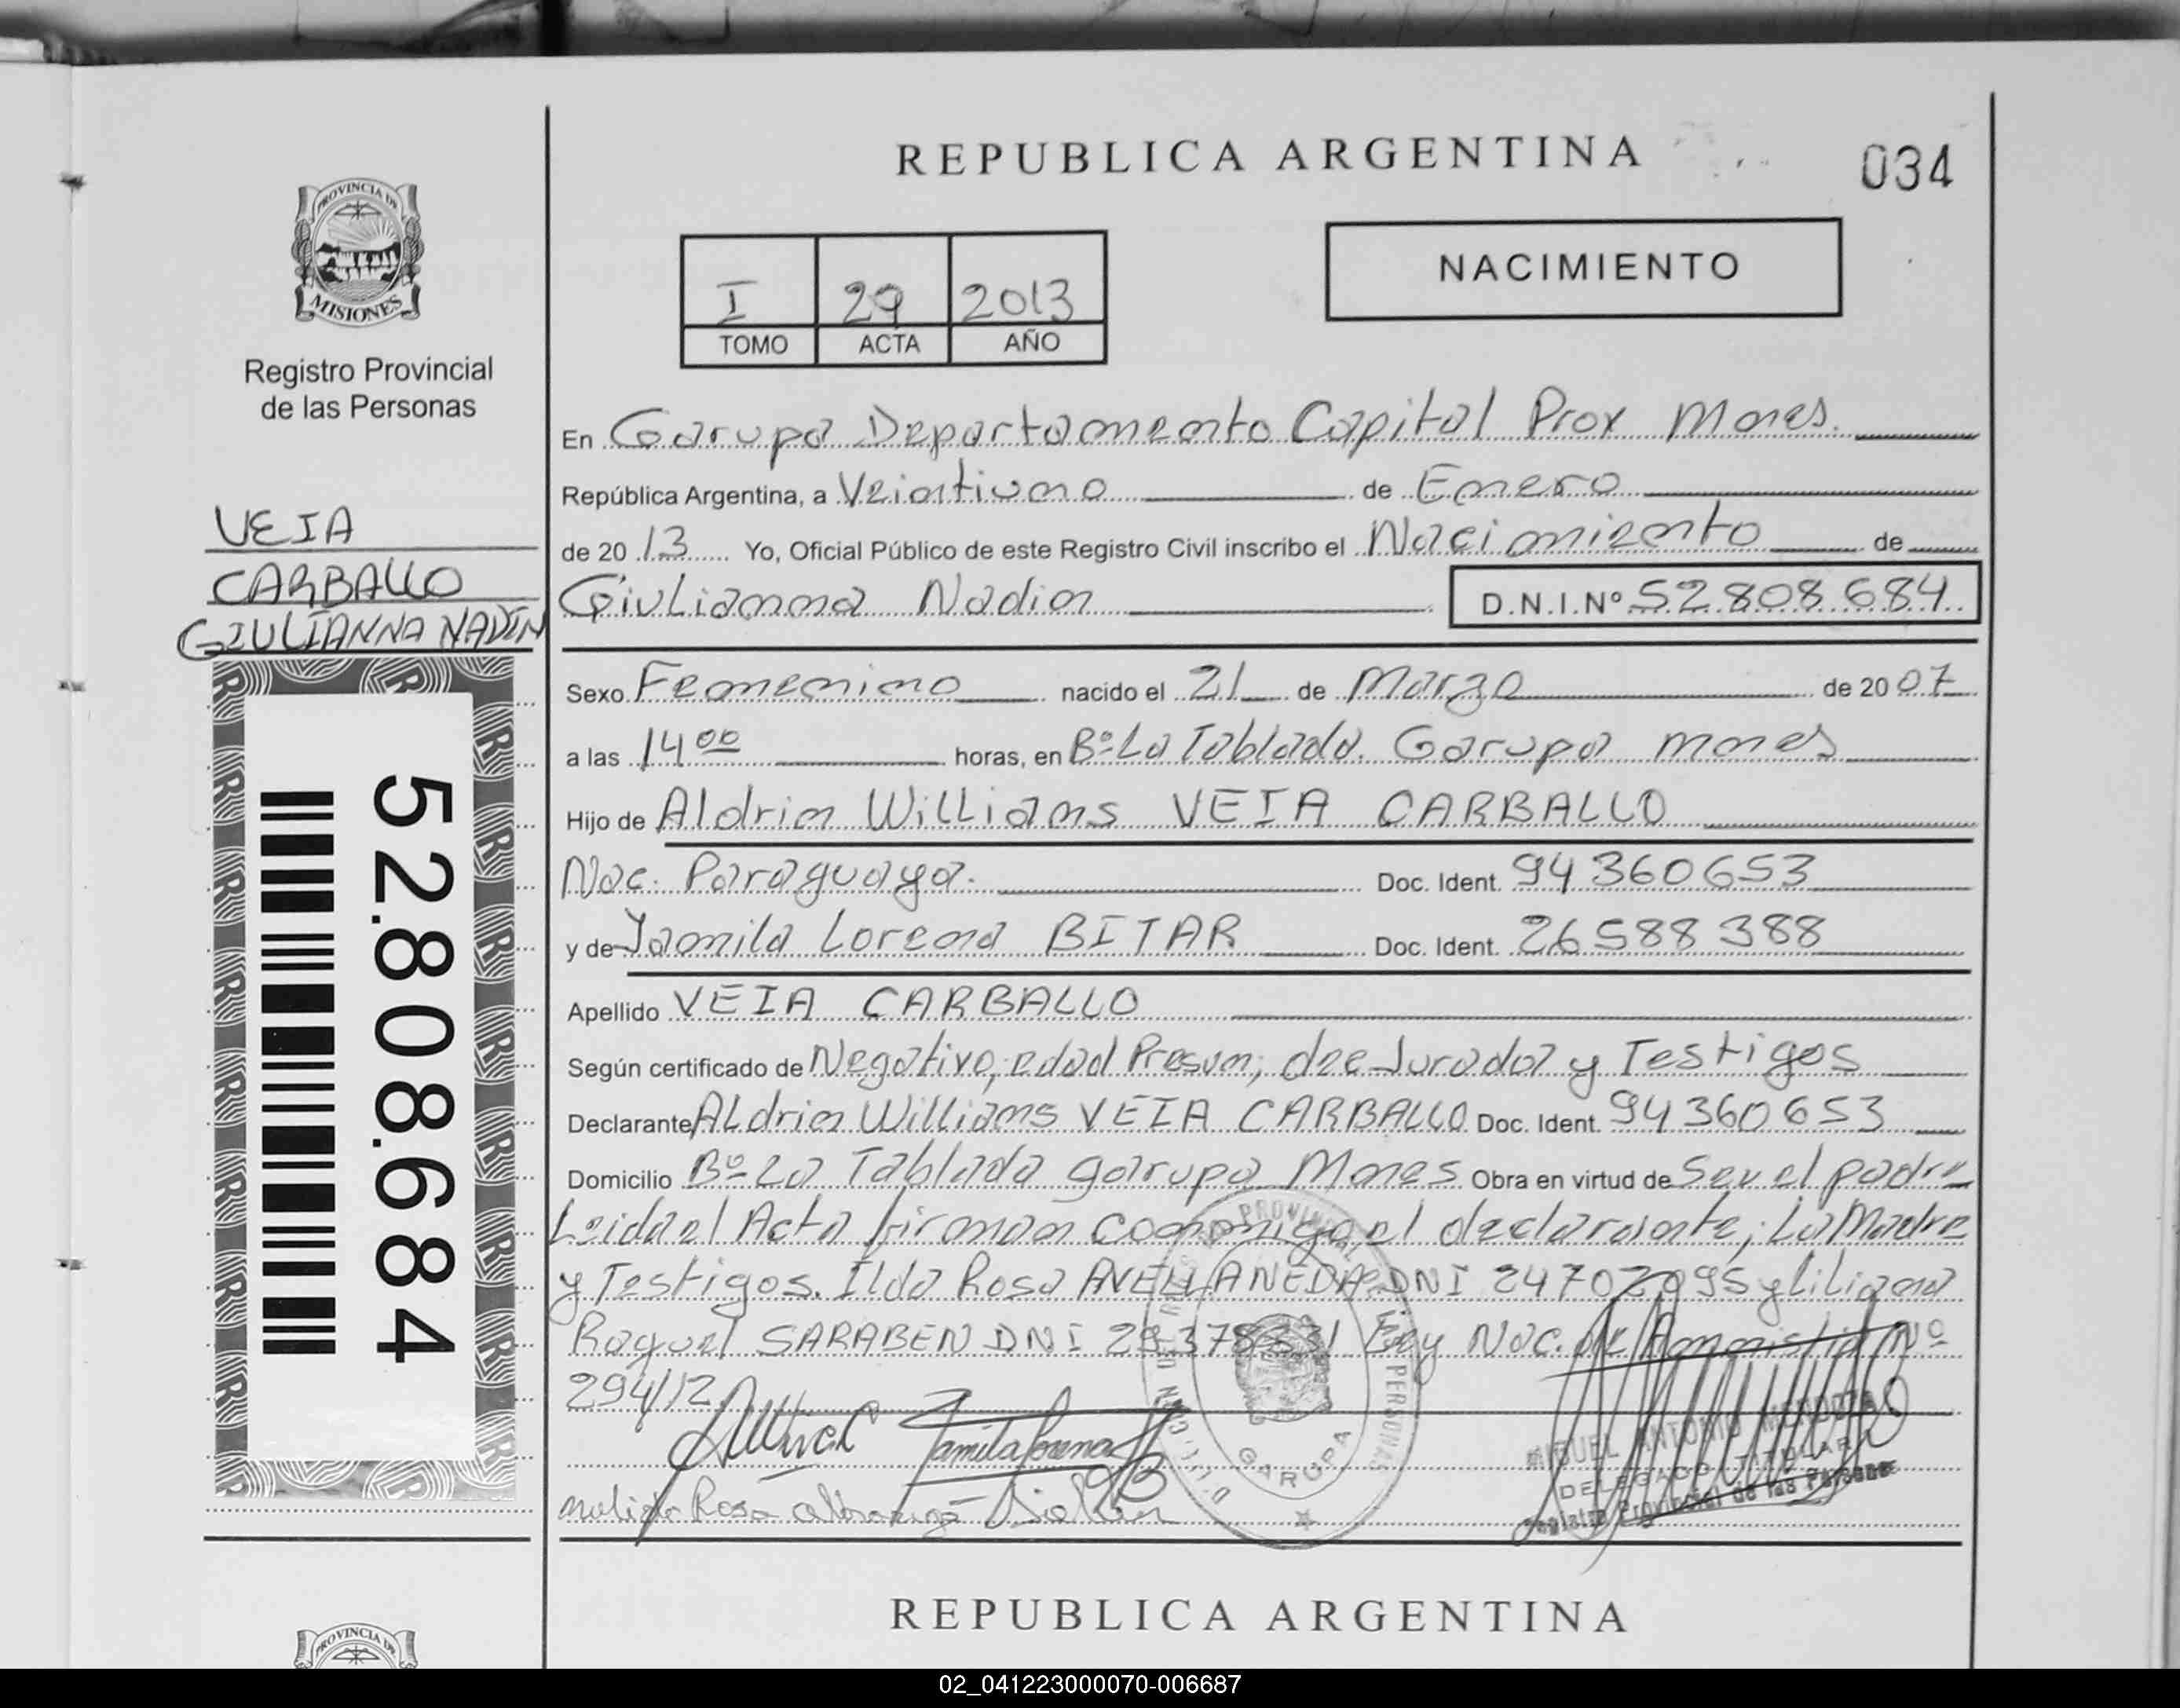 REPUBLICA ARGENTINA
034
PROVINCIA DE
MISIONES
Registro Provincial
de las Personas
VEIA
CARBALLO
GIULIANNA NADIN
52.808.684
I 29 2013
TOMO ACTA AÑO
NACIMIENTO
En Garupa Departamento Capital Prov Mnes.
República Argentina, a Veintiuno de Enero
de 20 13 Yo, Oficial Público de este Registro Civil inscribo el Nacimiento de
Giulianna Nadin D.N.I.Nº 52.808.684
Sexo Femenino nacido el 21 de Marzo de 20 07
a las 14 00 horas, en Bº La Tablada. Garupa Mnes
Hijo de Aldrin Willians VEIA CARBALLO
Nac. Paraguaya. Doc. Ident. 94 360 653
y de Yamila Lorena BITAR Doc. Ident. 26 588 388
Apellido VEIA CARBALLO
Según certificado de Negativo, edad Presun; dec Jurada y Testigos
Declarante Aldrin Willians VEIA CARBALLO Doc. Ident. 94 360 653
Domicilio Bº La Tablada Garupa Mnes Obra en virtud de Ser el padre
Leida el Acta firman conmigo el declarante; La Madre
y Testigos. Ilda Rosa AVELLANEDA DNI 24702095 y Liliana
Raquel SARABEN DNI Ley Nac. de Amnistia Nº
294/12.
Yamila Lorena
REGISTRO PROVINCIAL DE LAS PERSONAS
GARUPA
MIGUEL ANTONIO MENDOZA
DELEGADO TITULAR
Registro Provincial de las Personas
REPUBLICA ARGENTINA
PROVINCIA DE
02_041223000070-006687